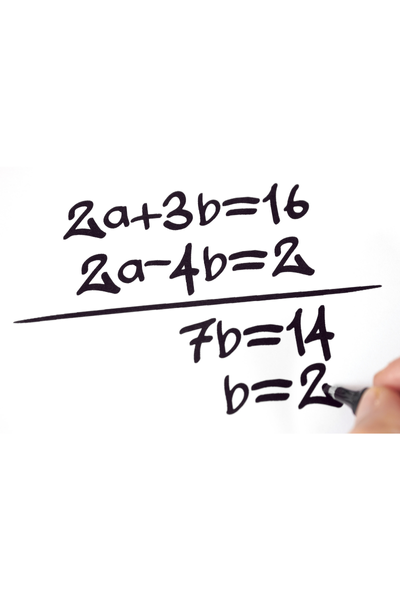 2a+3b=16
2a-4b=2
7b=14
b=2